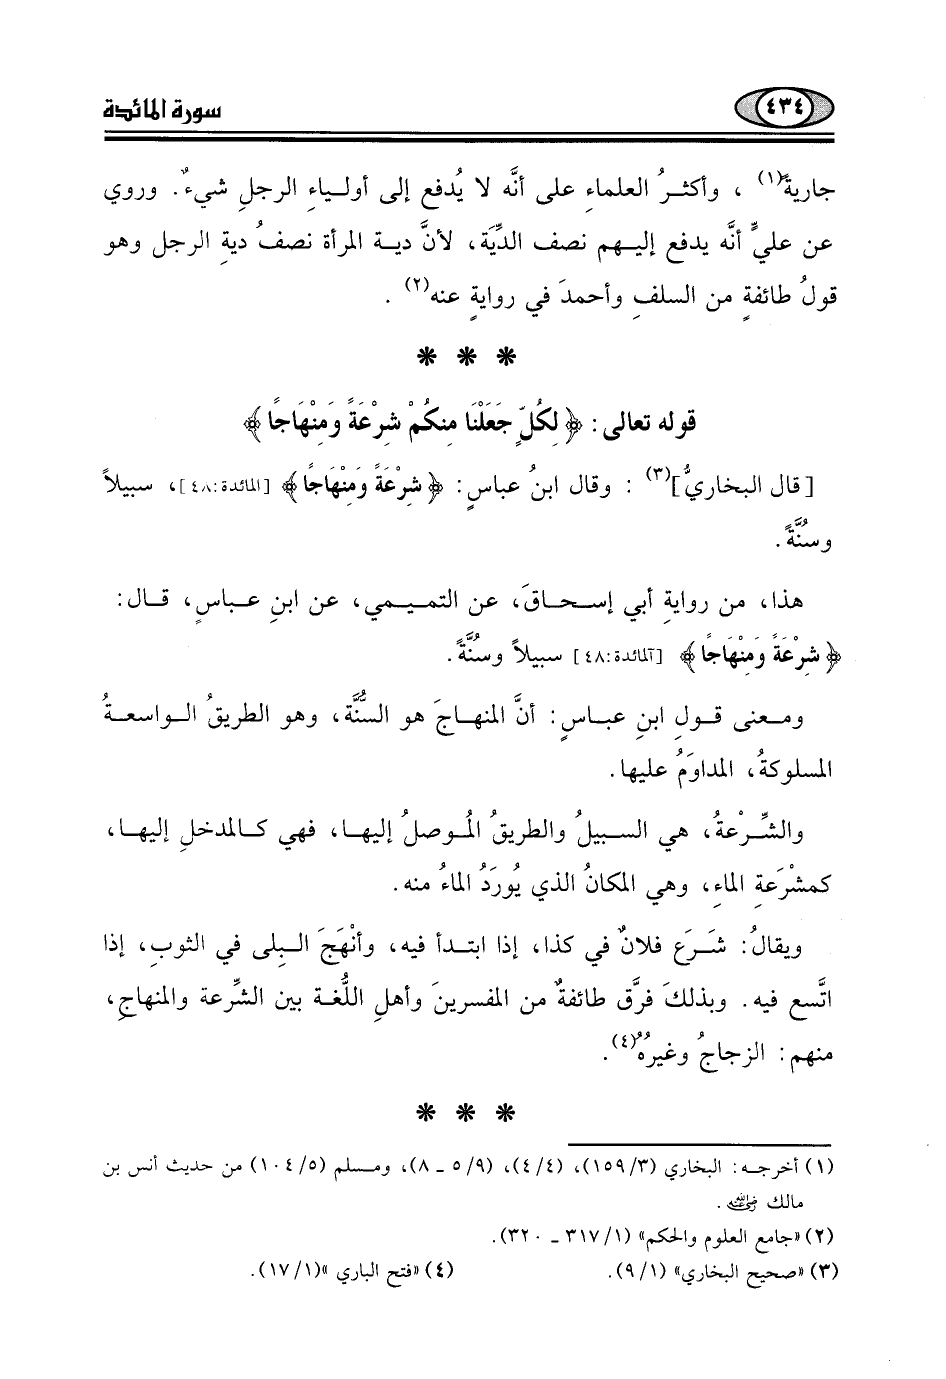 ٤٣٤ سورة المائدة
جارية(١) ، وأكثرُ العلماءِ على أنَّه لا يُدفع إلى أولياءِ الرجلِ شيءٌ. وروي
عن عليٍّ أنَّه يدفع إليهم نصف الدِّيَة، لأنَّ دية المرأة نصفُ ديةِ الرجل وهو
قولُ طائفةٍ من السلفِ وأحمدَ في روايةٍ عنه(٢) .
* * *
قوله تعالى: ﴿لِكُلٍّ جَعَلْنَا مِنكُمْ شِرْعَةً وَمِنْهَاجًا﴾
[قال البخاريُّ](٣) : وقال ابنُ عباسٍ: ﴿شِرْعَةً وَمِنْهَاجًا﴾ [المائدة:٤٨]، سبيلاً
وسُنَّةً.
هذا، من روايةِ أبي إسحاقَ، عن التميمي، عن ابنِ عباسٍ، قال:
﴿شِرْعَةً وَمِنْهَاجًا﴾ [المائدة:٤٨] سبيلاً وسُنَّةً.
ومعنى قولِ ابنِ عباسٍ: أنَّ المنهاجَ هو السنُّة، وهو الطريقُ الواسعةُ
المسلوكةُ، المداوَمُ عليها.
والشِّرْعةُ، هي السبيلُ والطريقُ المُوصلُ إليها، فهي كالمدخلِ إليها،
كمشْرَعةِ الماءِ، وهي المكانُ الذي يُورَدُ الماءُ منه.
ويقالُ: شَرَع فلانٌ في كذا، إذا ابتدأ فيه، وأنْهَجَ البلى في الثوبِ، إذا
اتَّسع فيه. وبذلكَ فرَّق طائفةٌ من المفسرينَ وأهلِ اللُّغة بين الشِّرعة والمنهاجِ،
منهم: الزجاجُ وغيرُهُ(٤).
* * *
(١) أخرجه: البخاري (١٥٩/٣)، (٤/٤)، (٥/٩ ـ ٨)، ومسلم (١٠٤/٥) من حديث أنس بن
مالك رضي الله عنه .
(٢) «جامع العلوم والحكم» (٣١٧/١ ـ ٣٢٠).
(٣) «صحيح البخاري» (٩/١). (٤) «فتح الباري »(١٧/١).